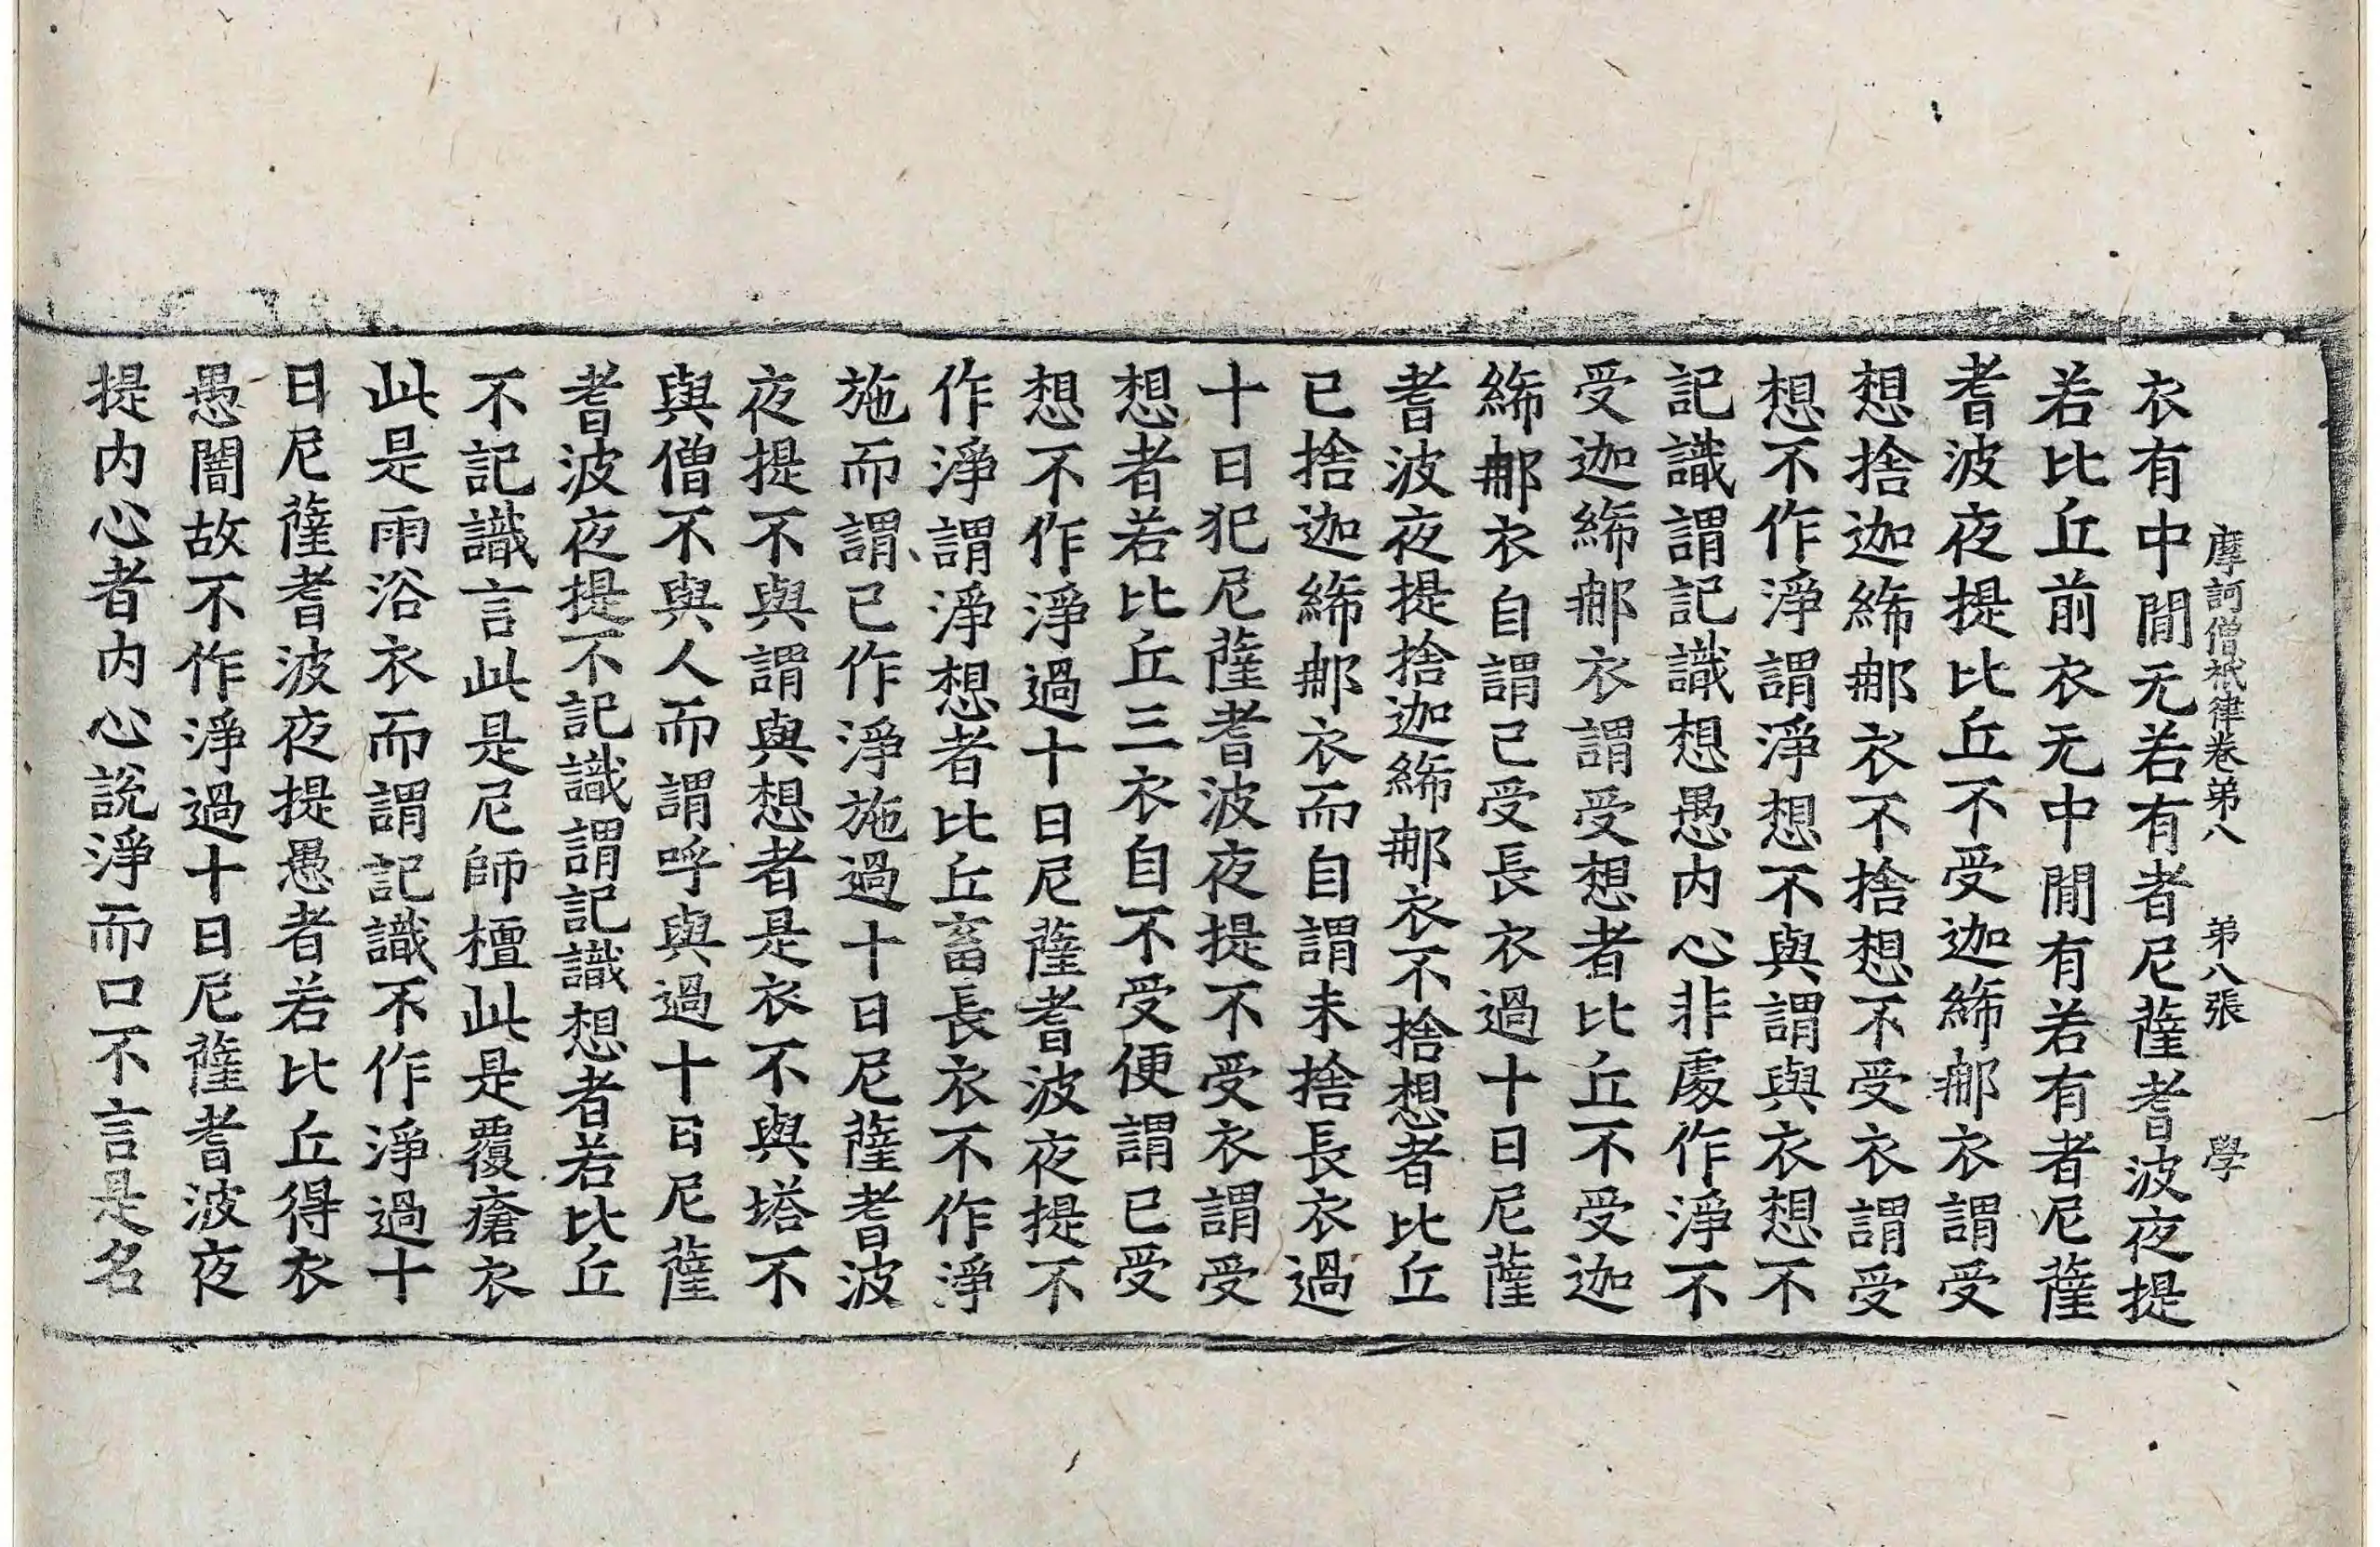 摩訶僧祇律卷弟八　弟八張　學
衣有中間无若有者尼薩耆波夜提
若比丘前衣无中間有若有者尼薩
耆波夜提比丘不受迦絺郍衣謂受
想捨迦絺郍衣不捨想不受衣謂受
想不作淨謂淨想不與謂與衣想不
記識謂記識想愚内心非處作淨不
受迦絺郍衣謂受想者比丘不受迦
絺郍衣自謂已受長衣過十日尼薩
耆波夜提捨迦絺郍衣不捨想者比丘
已捨迦絺郍衣而自謂未捨長衣過
十日犯尼薩耆波夜提不受衣謂受
想者若比丘三衣自不受便謂已受
想不作淨過十日尼薩耆波夜提不
作淨謂淨想者比丘畜長衣不作淨
施而謂已作淨施過十日尼薩耆波
夜提不與謂與想者是衣不與塔不
與僧不與人而謂呼與過十日尼薩
耆波夜提不記識謂記識想者若比丘
不記識言此是尼師檀此是覆瘡衣
此是雨浴衣而謂記識不作淨過十
日尼薩耆波夜提愚者若比丘得衣
愚闇故不作淨過十日尼薩耆波夜
提内心者内心說淨而口不言是名